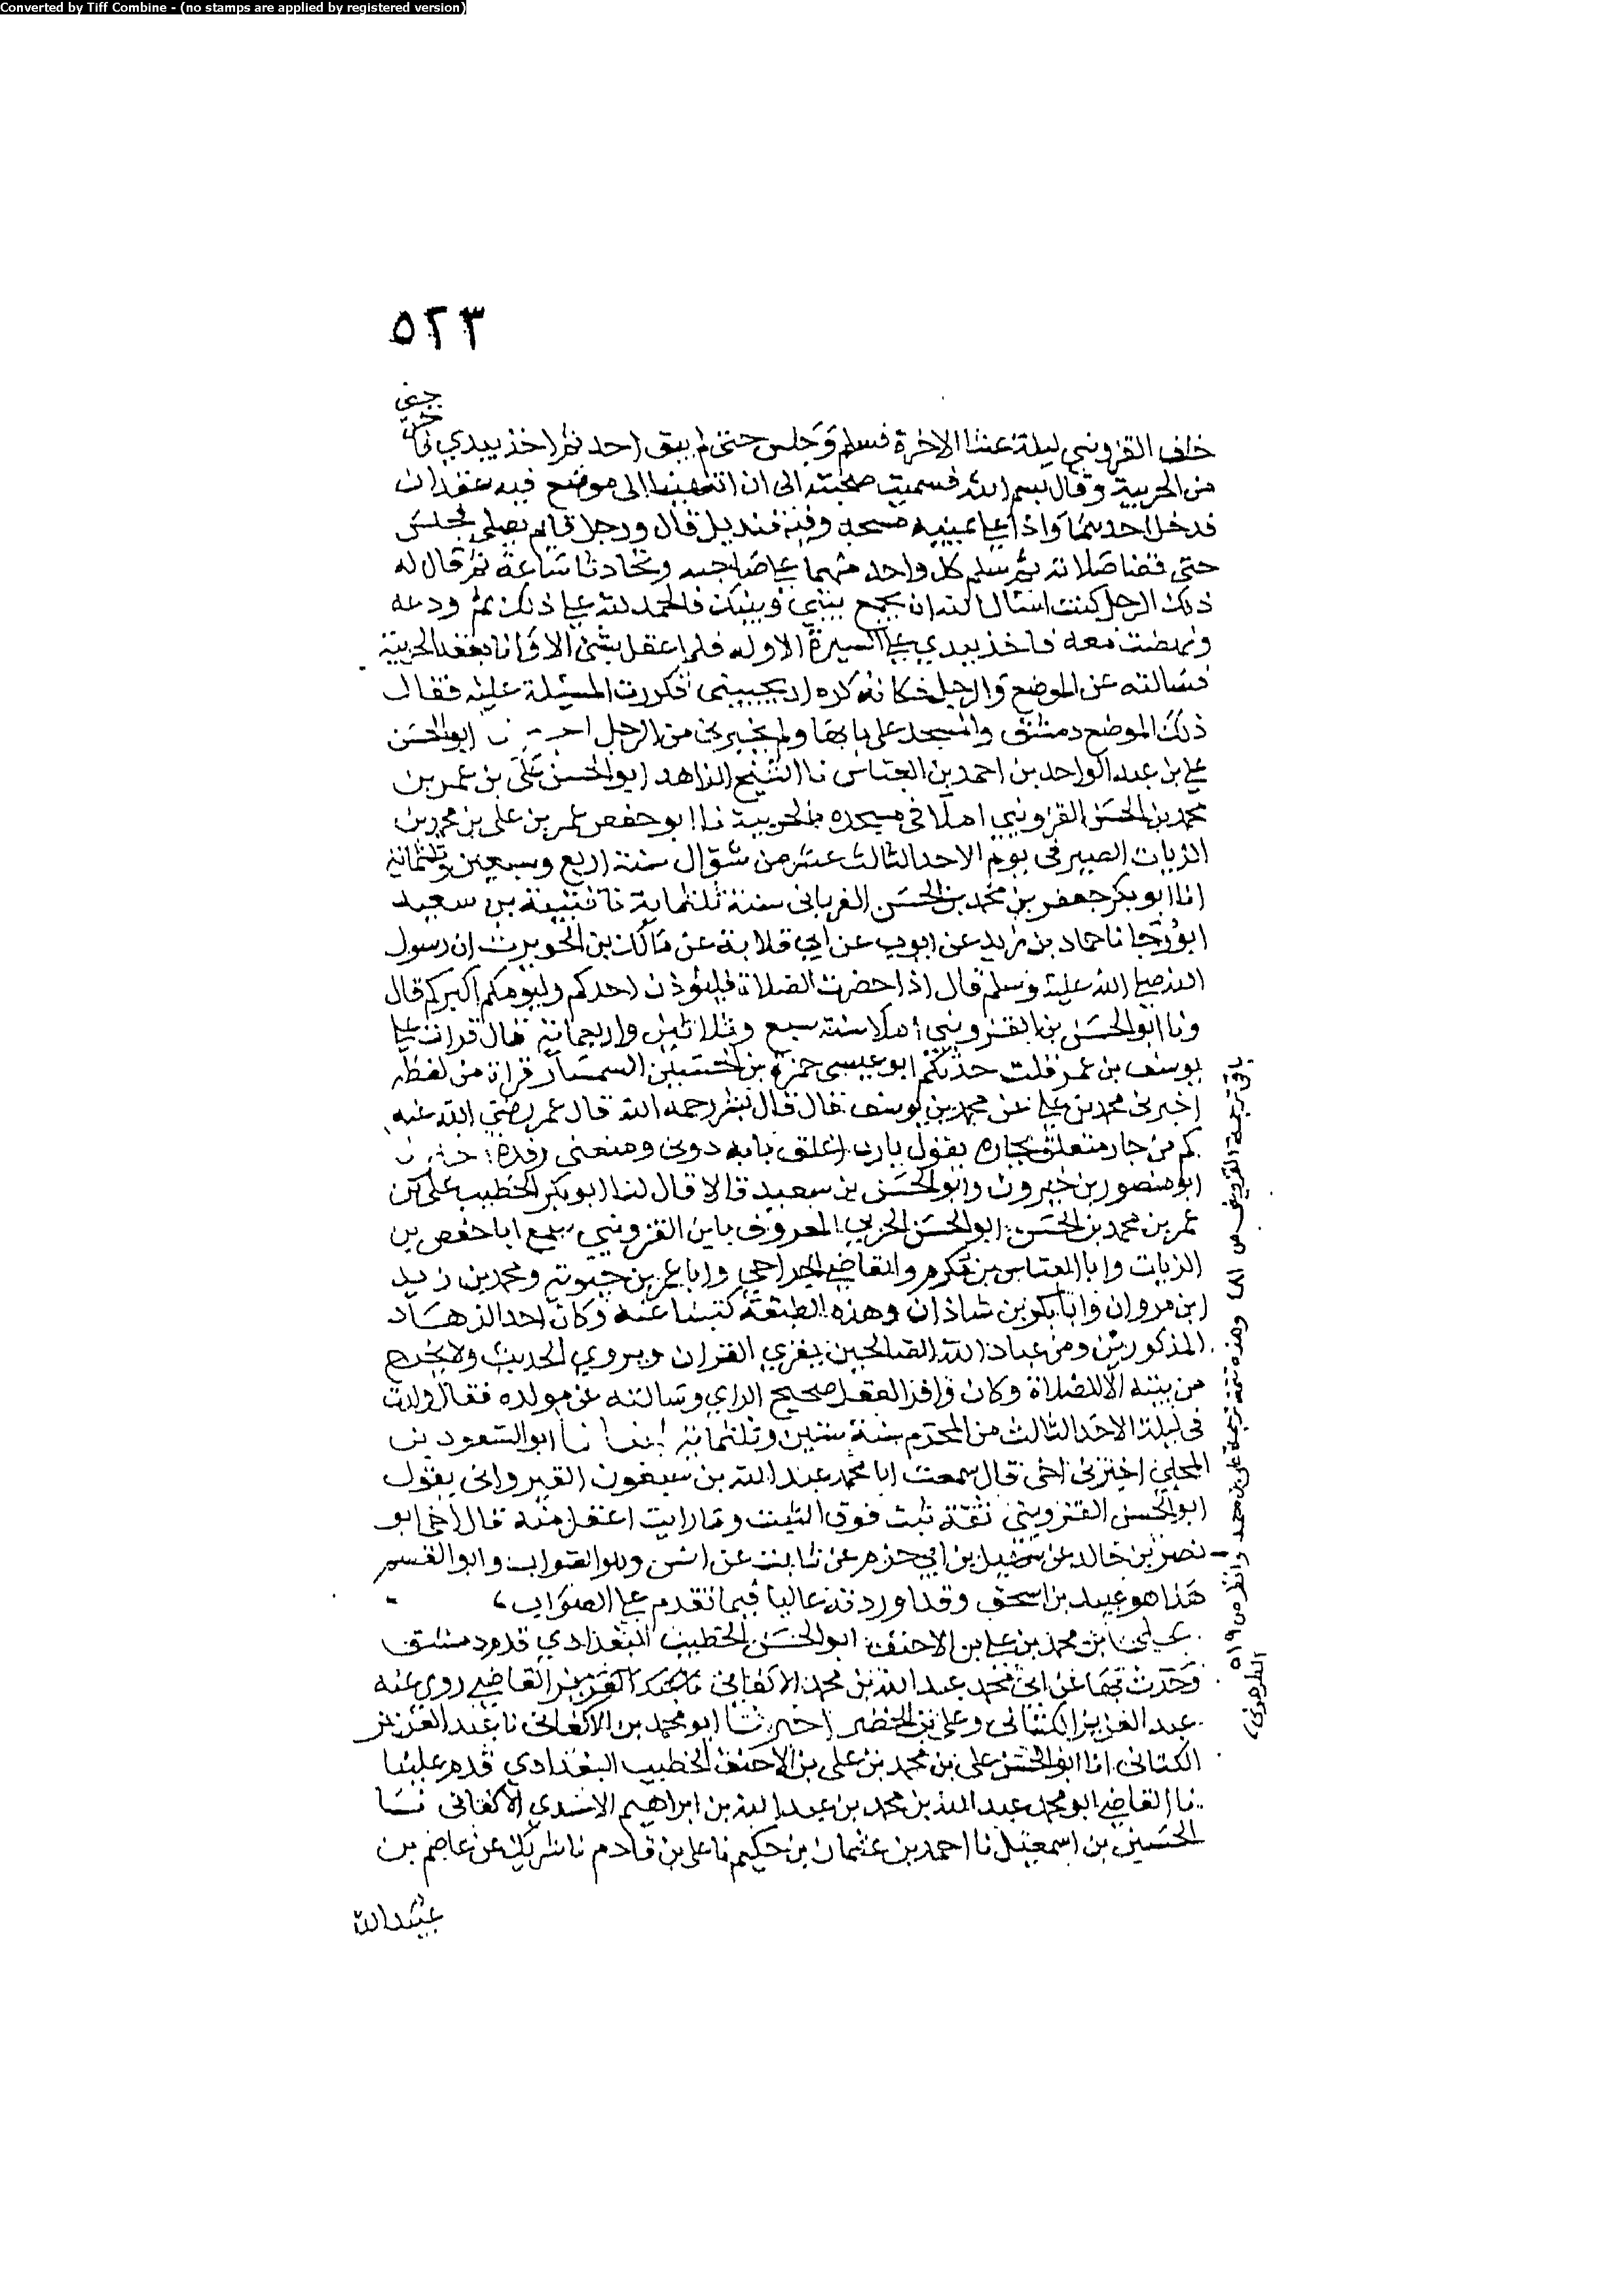 Converted by Tiff Combine - (no stamps are applied by registered version)
٥٢٣
خلف القزويني ليلة عشا الاخرة فسلم وجلس حتى لم يبق احد ثم اخذ بيدي
من الحربية وقال بسم الله فسميت صحبته الى ان انتهينا الى موضع فيه عقدان
فدخل احدهما واذا على يمينه مسجد وفيه قنديل قال ورجل قايم يصلي فجلس
حتى قضا صلاته ثم سلم كل واحد منهما على صاحبه وتحادثا ساعة ثم قال له
ذلك الرجل كنت اسال الله ان يجمع بيني وبينك فالحمد لله على ذلك ثم ودعه
ونهضت معه فاخذ بيدي على السيرة الاوله فلم اعقل بشى الا وانا بعقد الحربية
فسالته عن الموضع والرجل فكانه كره ان يجيبني فكررت المسئلة عليه فقال
ذلك الموضع دمشق والمسجد على بابها ولم يخبرني من الرجل ابو الحسن
علي بن عبد الواحد بن احمد بن العباس نا الشيخ الزاهد ابو الحسن علي بن عمر بن
محمد بن الحسن القزويني املا في مسجده بالحربية نا ابو حفص عمر بن علي بن محمد بن
الزيات الصيرفي يوم الاحد الثالث عشر من شوال سنة اربع وسبعين وثلثمائة
انا ابو بكر جعفر بن محمد بن الحسن الفريابي سنة ثلثماية نا قتيبة بن سعيد
ابو رجا نا حماد بن زيد عن ايوب عن ابي قلابة عن مالك بن الحويرث ان رسول
الله صلى الله عليه وسلم قال اذا حضرت الصلاة فليؤذن احدكم وليؤمكم اكبركم قال
ونا ابو الحسن بن القزويني املا سنة سبع وثلاثين واربعمائة قال قرات على
يوسف بن عمر قلت حدثكم ابو عيسى حمزة بن الحسين السمسار قراة من لفظه
اخبرني محمد بن علي عن محمد بن يوسف قال قال بشر رحمه الله قال عمر رضي الله عنه
كم من جار متعلق بجاره يقول يارب اغلق بابه دوني ومنعني رفده
ابو منصور بن خيرون وابو الحسن بن سعيد قالا قال لنا ابو بكر الخطيب علي بن
عمر بن محمد بن الحسن ابو الحسن الحربي المعروف بابن القزويني سمع ابا حفص بن
الزيات وابا العباس بن مكرم والقاضي الجراحي وابا عمر بن حيويه ومحمد بن زيد
ابن مروان وابا بكر بن شاذان وهذه الطبقة كتبنا عنه وكان احد الزهاد
المذكورين ومن عباد الله الصالحين يقري القران ويروي الحديث ولا يخرج
من بيته الا للصلاة وكان وافر العقل صحيح الراي وسالته عن مولده فقال ولدت
في ليلة الاحد الثالث من المحرم سنة ستين وثلثمائة انبا نا ابو السعود بن
المجلي اخبرني اخي قال سمعت ابا محمد عبد الله بن سبعون القيرواني يقول
ابو الحسن القزويني ثقة ثبت فوق الثبت وما رايت اعقل منه قال اخي ابو
نصر بن خالد عن سهيل بن ابي حزم عن ثابت عن انس وهو الصواب وابو القسم
هذا هو عبيد بن اسحق وقد اوردته عاليا فيما تقدم على الصواب
علي بن محمد بن علي بن الاحنف ابو الحسن الخطيب البغدادي قدم دمشق
وحدث بها عن ابي محمد عبد الله بن محمد الاكفاني القاضي روى عنه
عبد العزيز الكتاني وعلي بن الخضر اخبرنا ابو محمد بن الاكفاني نا عبد العزيز
الكتاني انا ابو الحسن علي بن محمد بن علي بن الاحنف الخطيب البغدادي قدم علينا
نا القاضي ابو محمد عبد الله بن محمد بن عبد الله بن ابراهيم الاسدي الاكفاني نا
الحسين بن اسمعيل نا احمد بن عثمان بن حكيم نا علي بن قادم نا شريك عن عاصم بن
عبيد الله
باقي ترجمة القزويني ص وهذه تتمة ترجمة علي بن محمد وانظر ص ٥١٩